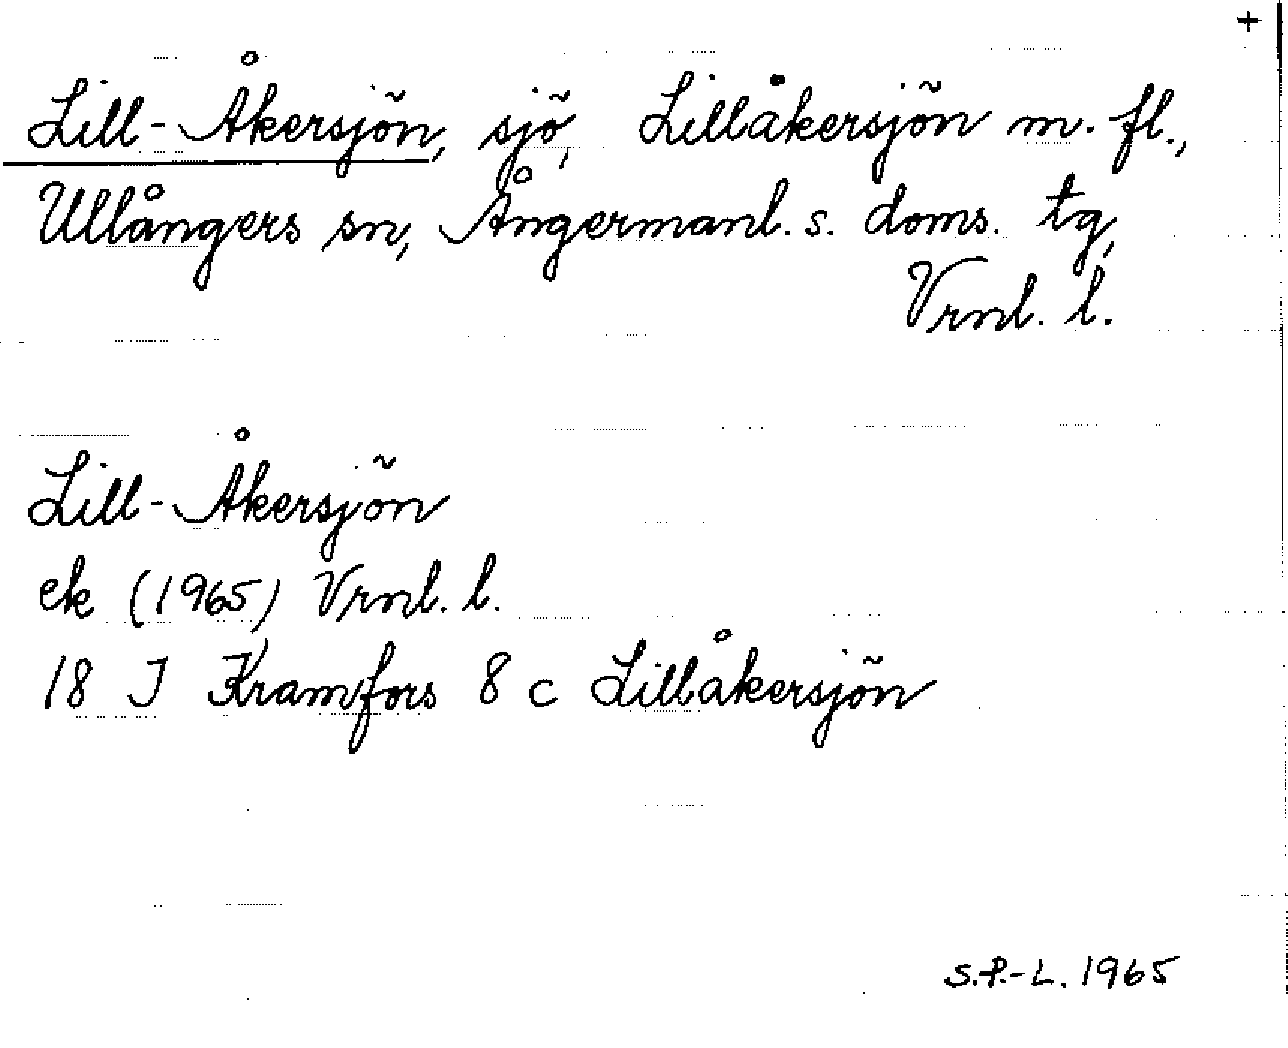 +
Lill-Åkersjön, sjö, Lillåkersjön m. fl.,
Ullångers sn, Ångermanl. s. doms. tg,
Vrnl. l.
Lill-Åkersjön
ek (1965) Vrnl. l.
18 J Kramfors 8 c Lillåkersjön
S.P.-L. 1965